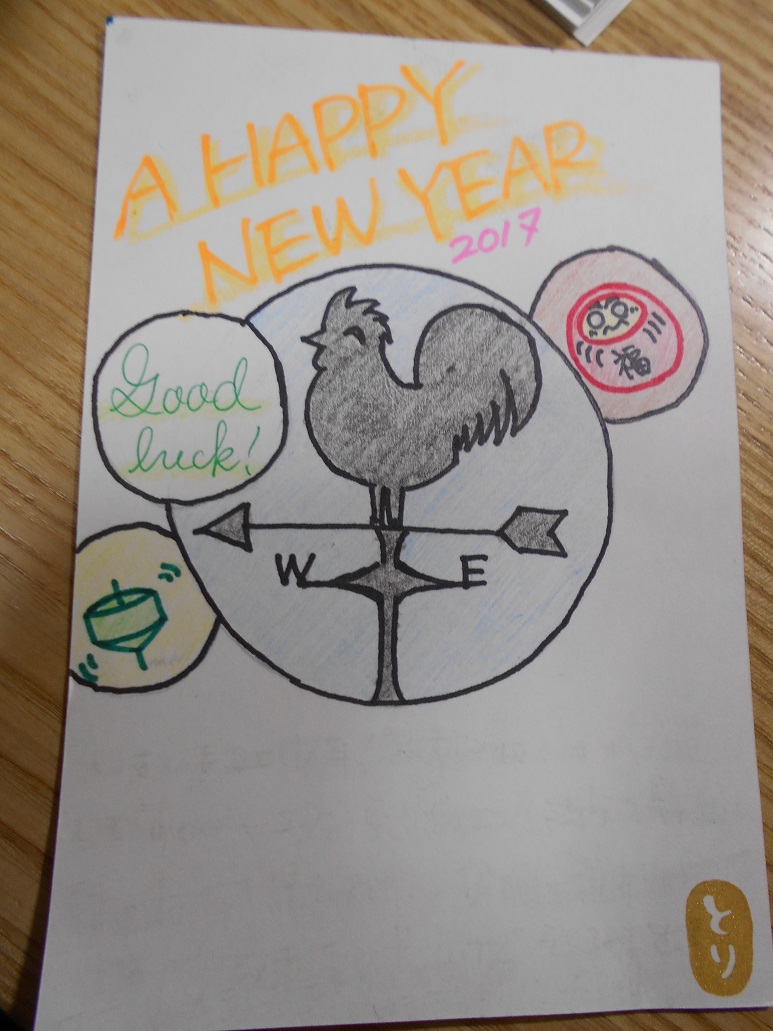 A HAPPY
NEW YEAR
2017
Good
luck!
福
W E
とり